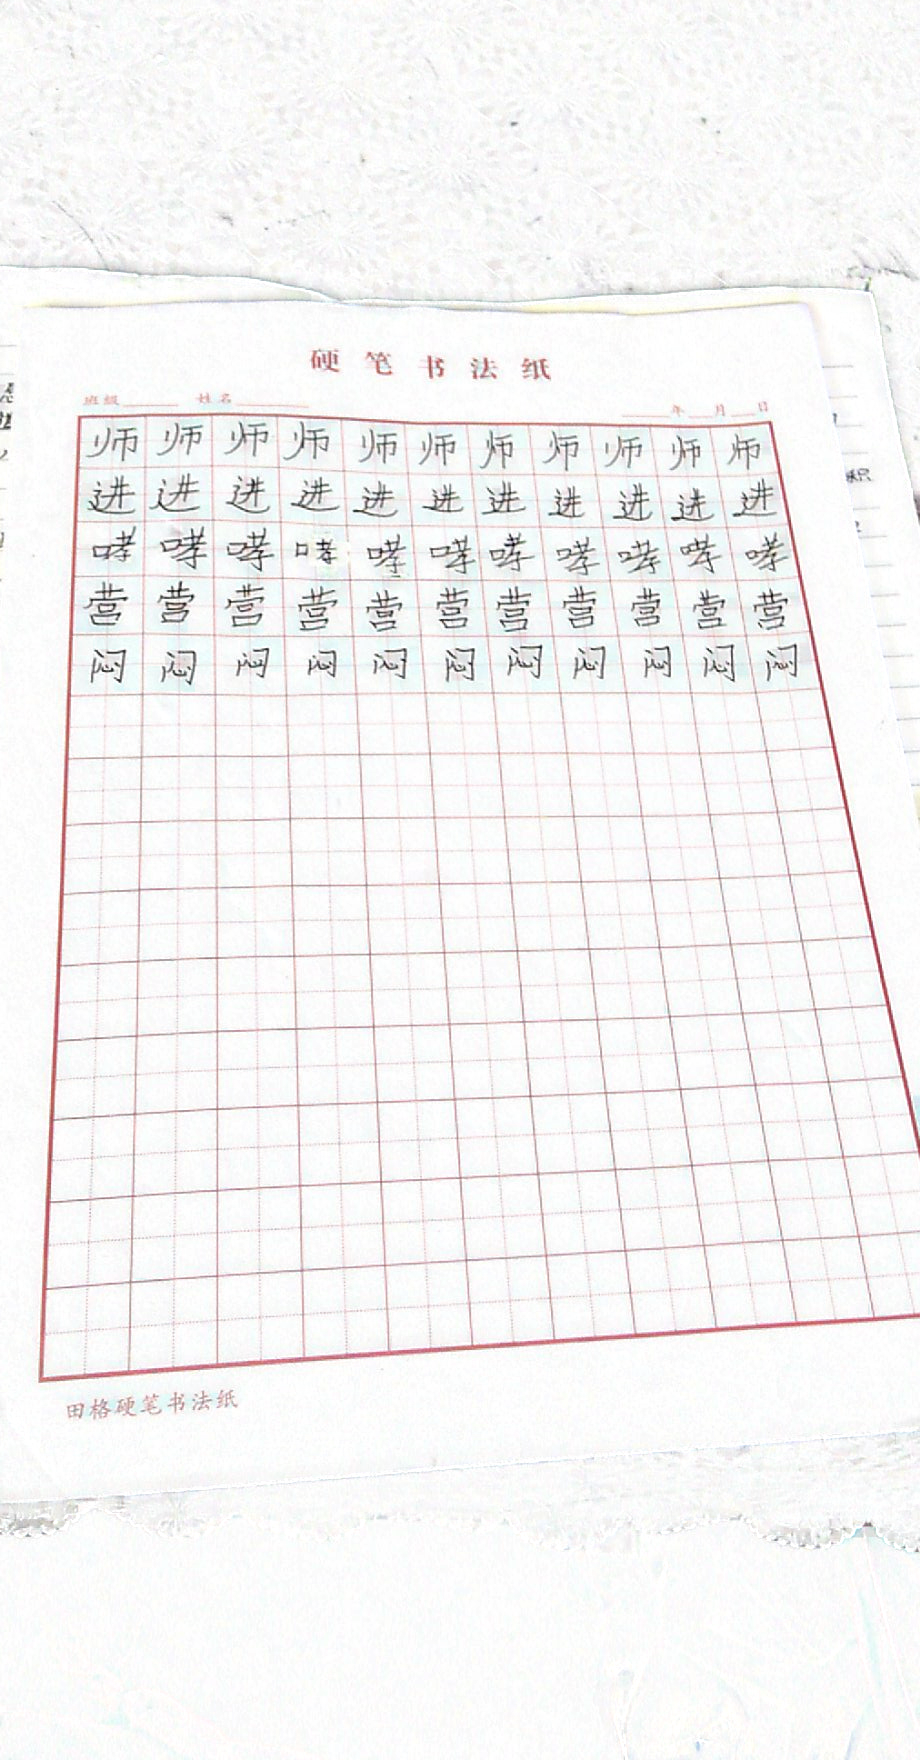 硬笔书法纸
班级 姓名 年 月 日
师师师师师师师师师师师
进进进进进进进进进进进
哮哮哮哮哮哮哮哮哮哮哮
营营营营营营营营营营营
闷闷闷闷闷闷闷闷闷闷闷
田格硬笔书法纸